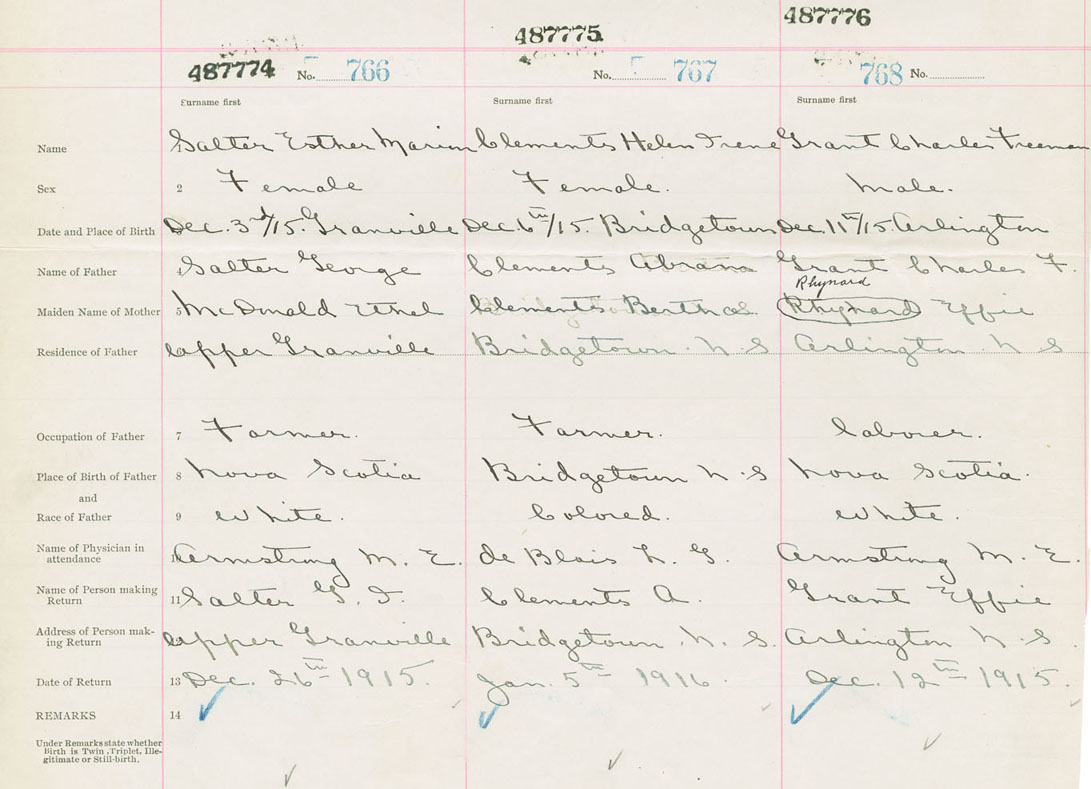 487774 No. 766 487775 No. 767 487776 768 No.
Surname first Surname first Surname first
Name 1 Salter Esther Marion Clements Helen Irene Grant Charles Freeman
Sex 2 Female Female. Male.
Date and Place of Birth Dec. 3rd/15. Granville Dec. 6th/15. Bridgetown Dec. 11th/15. Arlington
Name of Father 4 Salter George Clements Abram Grant Charles F.
Rhynard
Maiden Name of Mother 5 McDonald Ethel Clements Bertha Rhynard Effie
Residence of Father Upper Granville Bridgetown. N. S Arlington. N S
Occupation of Father 7 Farmer. Farmer. Laborer.
Place of Birth of Father 8 Nova Scotia Bridgetown N. S Nova Scotia.
and
Race of Father 9 White. Colored. White.
Name of Physician in
attendance Armstrong M. E. de Blois L. G. Armstrong M. E.
Name of Person making
Return 11 Salter G. I. Clements A. Grant Effie
Address of Person mak-
ing Return Upper Granville Bridgetown. N. S. Arlington N. S
Date of Return 13 Dec. 26th 1915. Jan. 5th 1916. Dec. 12th 1915.
REMARKS 14
Under Remarks state whether
Birth is Twin, Triplet, Ille-
gitimate or Still-birth.